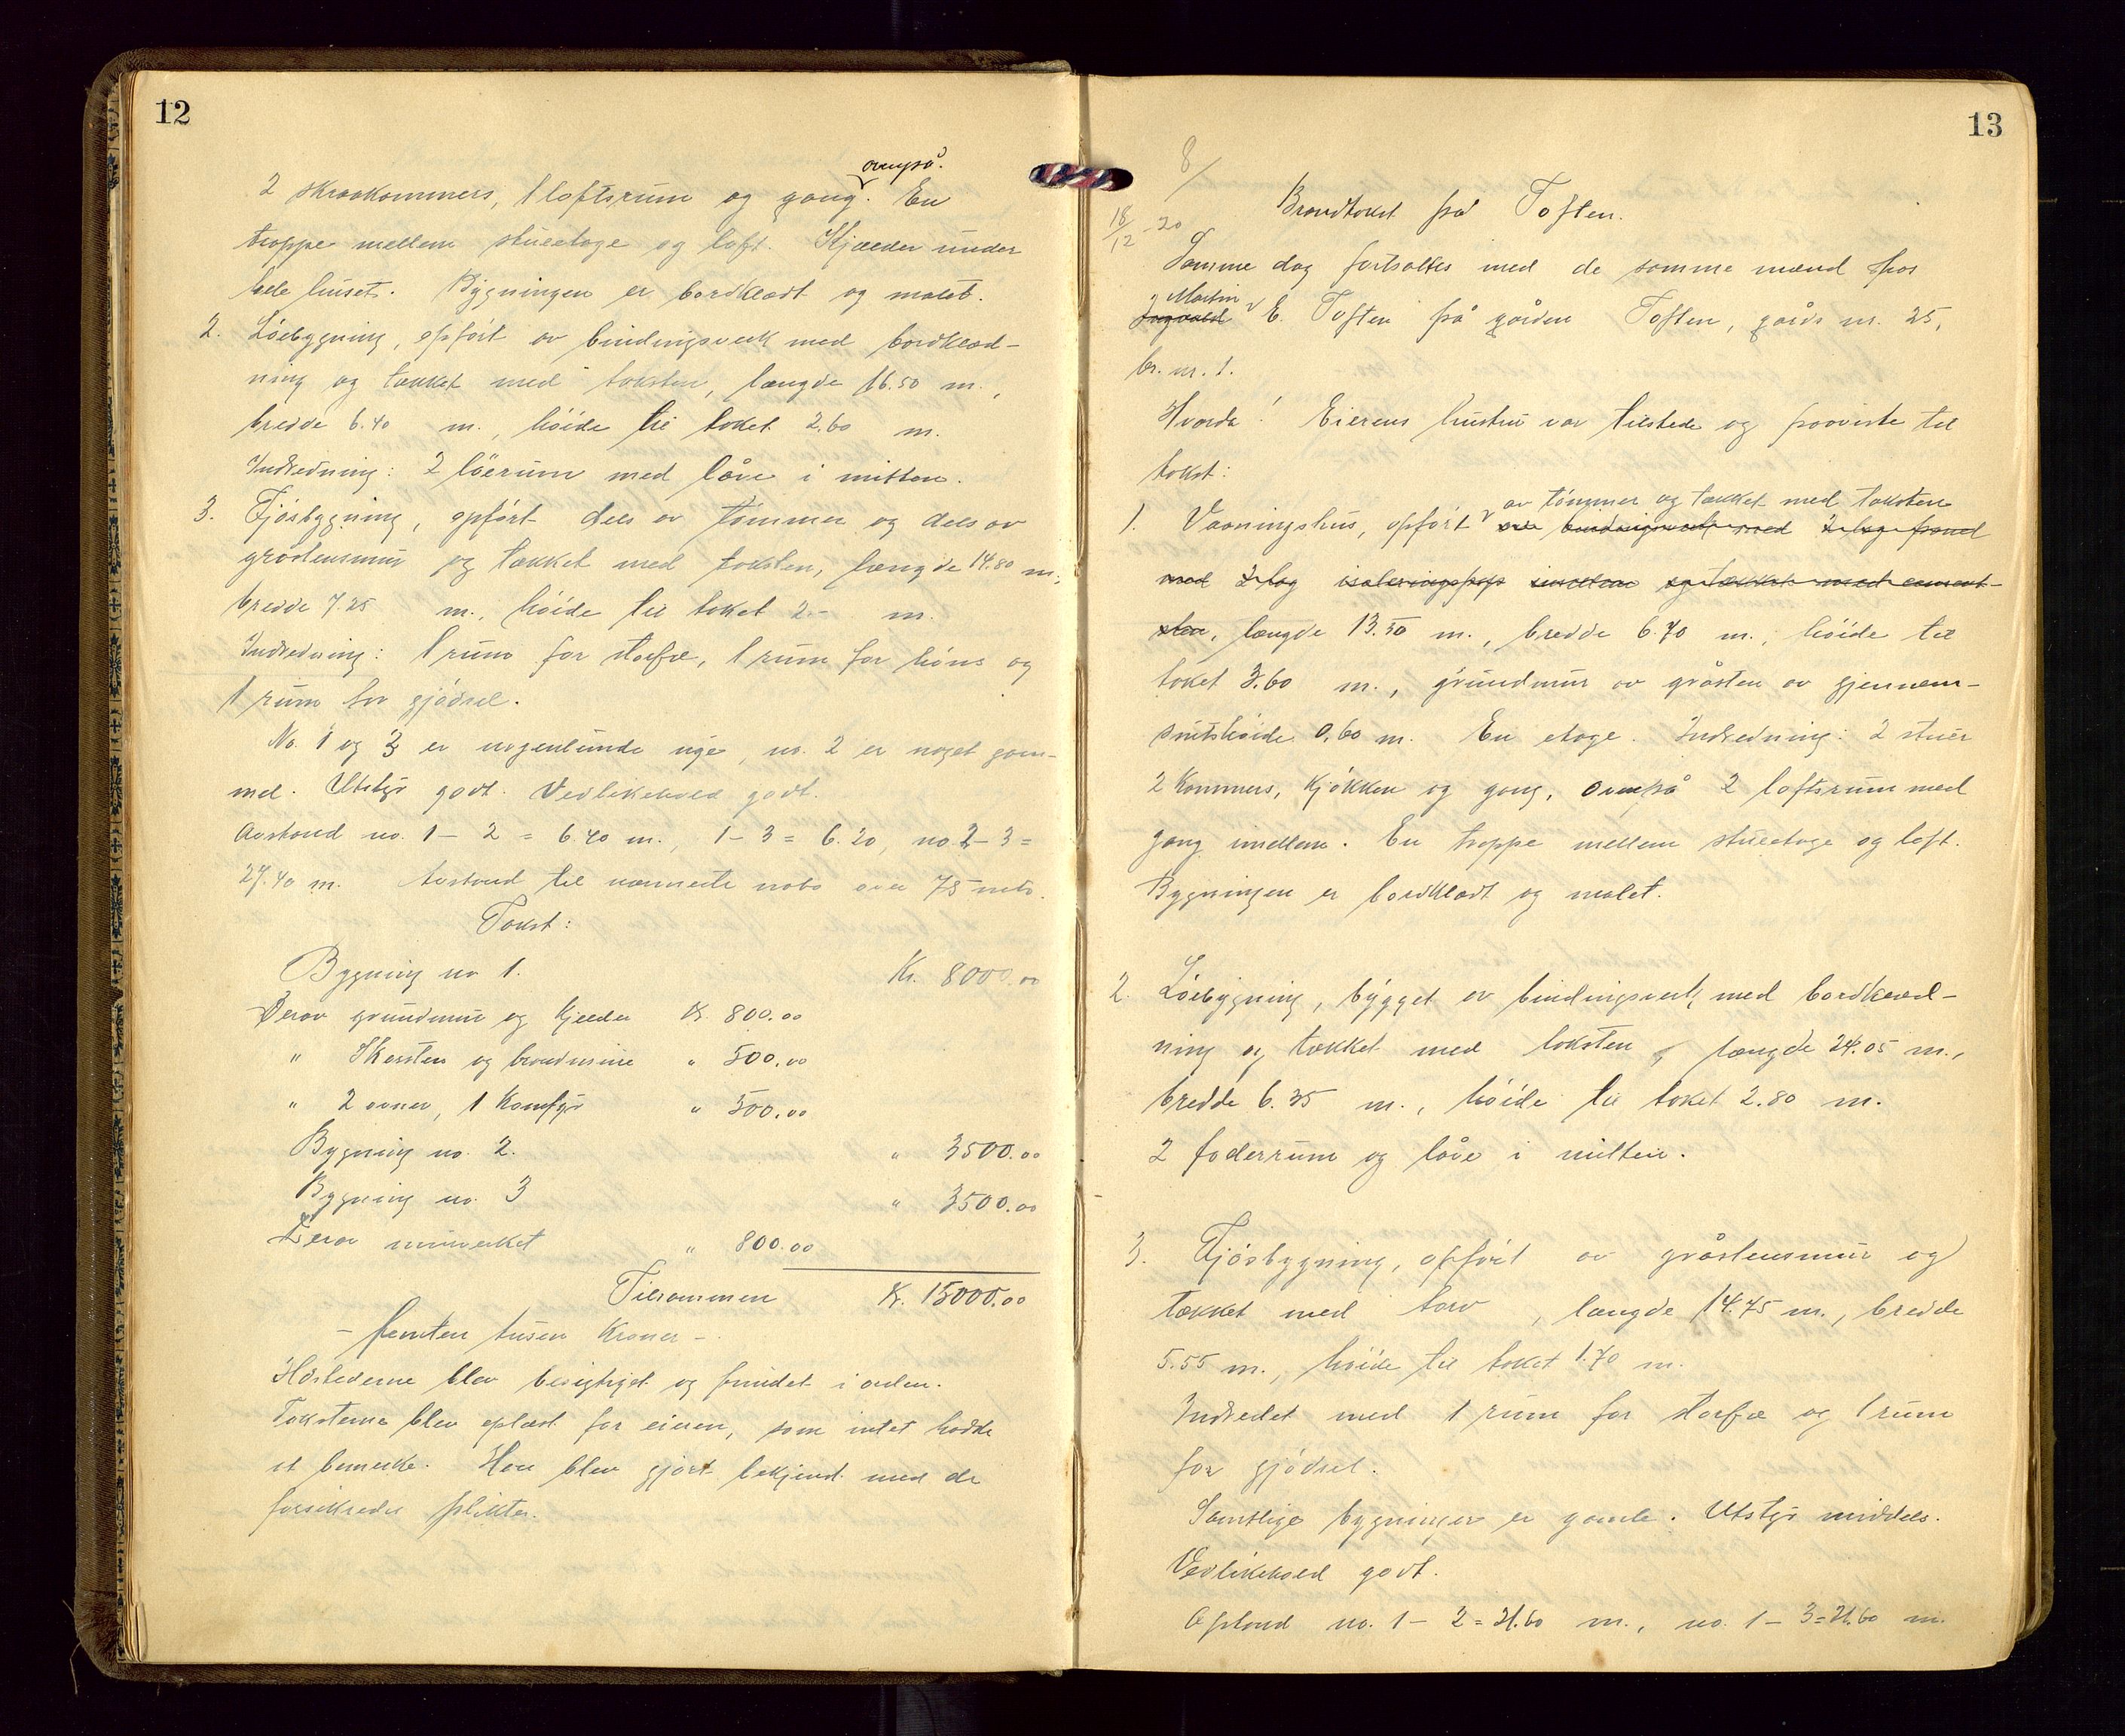 12
ovenpaa.
2 skraakammers, 1 loftsrum og gang. En
trappe mellem stueetage og loft. Kjælder under
hele huset. Bygningen er bordklædt og malet.
2. Løebygning, opført av bindingsverk med bordklæd-
ning og tækket med taksten, længde 16.50 m.,
bredde 6.40 m., høide til taket 2.60 m.
Indredning: 2 løerum med låve i mitten.
3. Fjøsbygning, opført dels av tømmer og dels av
gråstensmur og tækket med taksten, længde 14.80 m.,
bredde 7.25 m., høide til taket 2.- m.
Indredning: 1 rum for storfæ, 1 rum for høns og
1 rum for gjødsel.
No. 1 og 3 er nogenlunde nye, no. 2 er noget gam-
mel. Utstyr godt. Vedlikehold godt.
Avstand no. 1 - 2 = 6.40 m., 1 - 3 = 6.20, no. 2 - 3 =
27.40 m. Avstand til nærmeste nabo over 75 mtr.
Takst:
Bygning no 1. Kr. 8000.00
Derav grundmur og kjelder Kr. 800.00
" Skorsten og brandmure " 500.00
" 2 ovner, 1 Komfyr " 500.00
Bygning no. 2. " 3500.00
Bygning no. 3 " 3500.00
Derav murverket " 800.00
Tilsammen Kr. 15000.00
- femten tusen Kroner -
Ildstederne blev besigtiget og fundet i orden.
Taksterne blev oplæst for eieren, som intet hadde
at bemerke. Han blev gjort bekjend med de
forsikredes plikter.
13
8/
18/12 - 20
Brandtakst på Toften.
Samme dag fortsattes med de samme mænd hos
Martin
Ingvald E. Toften på gården Toften, gårds nr. 25,
br. nr. 1.
Hvorda! Eierens hustru var tilstede og paaviste til
takst:
av tømmer og tækket med taksten
1. Vaaningshus, opført av bindingsverk med 2 lag panel
med 2 lag isoleringspap imellem og tækket med cement-
sten, længde 13.50 m., bredde 6.70 m., høide til
taket 3.60 m., grundmur av gråsten av gjennem-
snitshøide 0,60 m. En etage. Indredning: 2 stuer
2 Kammers, Kjøkken og gang, ovenpå 2 loftsrum med
gang imellem. En trappe mellem stueetage og loft.
Bygningen er bordklædt og malet.
2. Løebygning, bygget av bindingsverk med bordklæd-
ning og tækket med taksten, længde 24.05 m.,
bredde 6.35 m., høide til taket 2.80 m.
2 foderrum og låve i mitten.
3. Fjøsbygning, opført av gråstensmur og
tækket med torv, længde 14.75 m., bredde
5.55 m., høide til taket 1.70 m.
Indredet med 1 rum for storfæ og 1 rum
for gjødsel.
Samtlige bygninger er gamle. Utstyr middels.
Vedlikehold godt.
Afstand no. 1 - 2 = 21.60 m., no. 1 - 3 = 21.60 m.